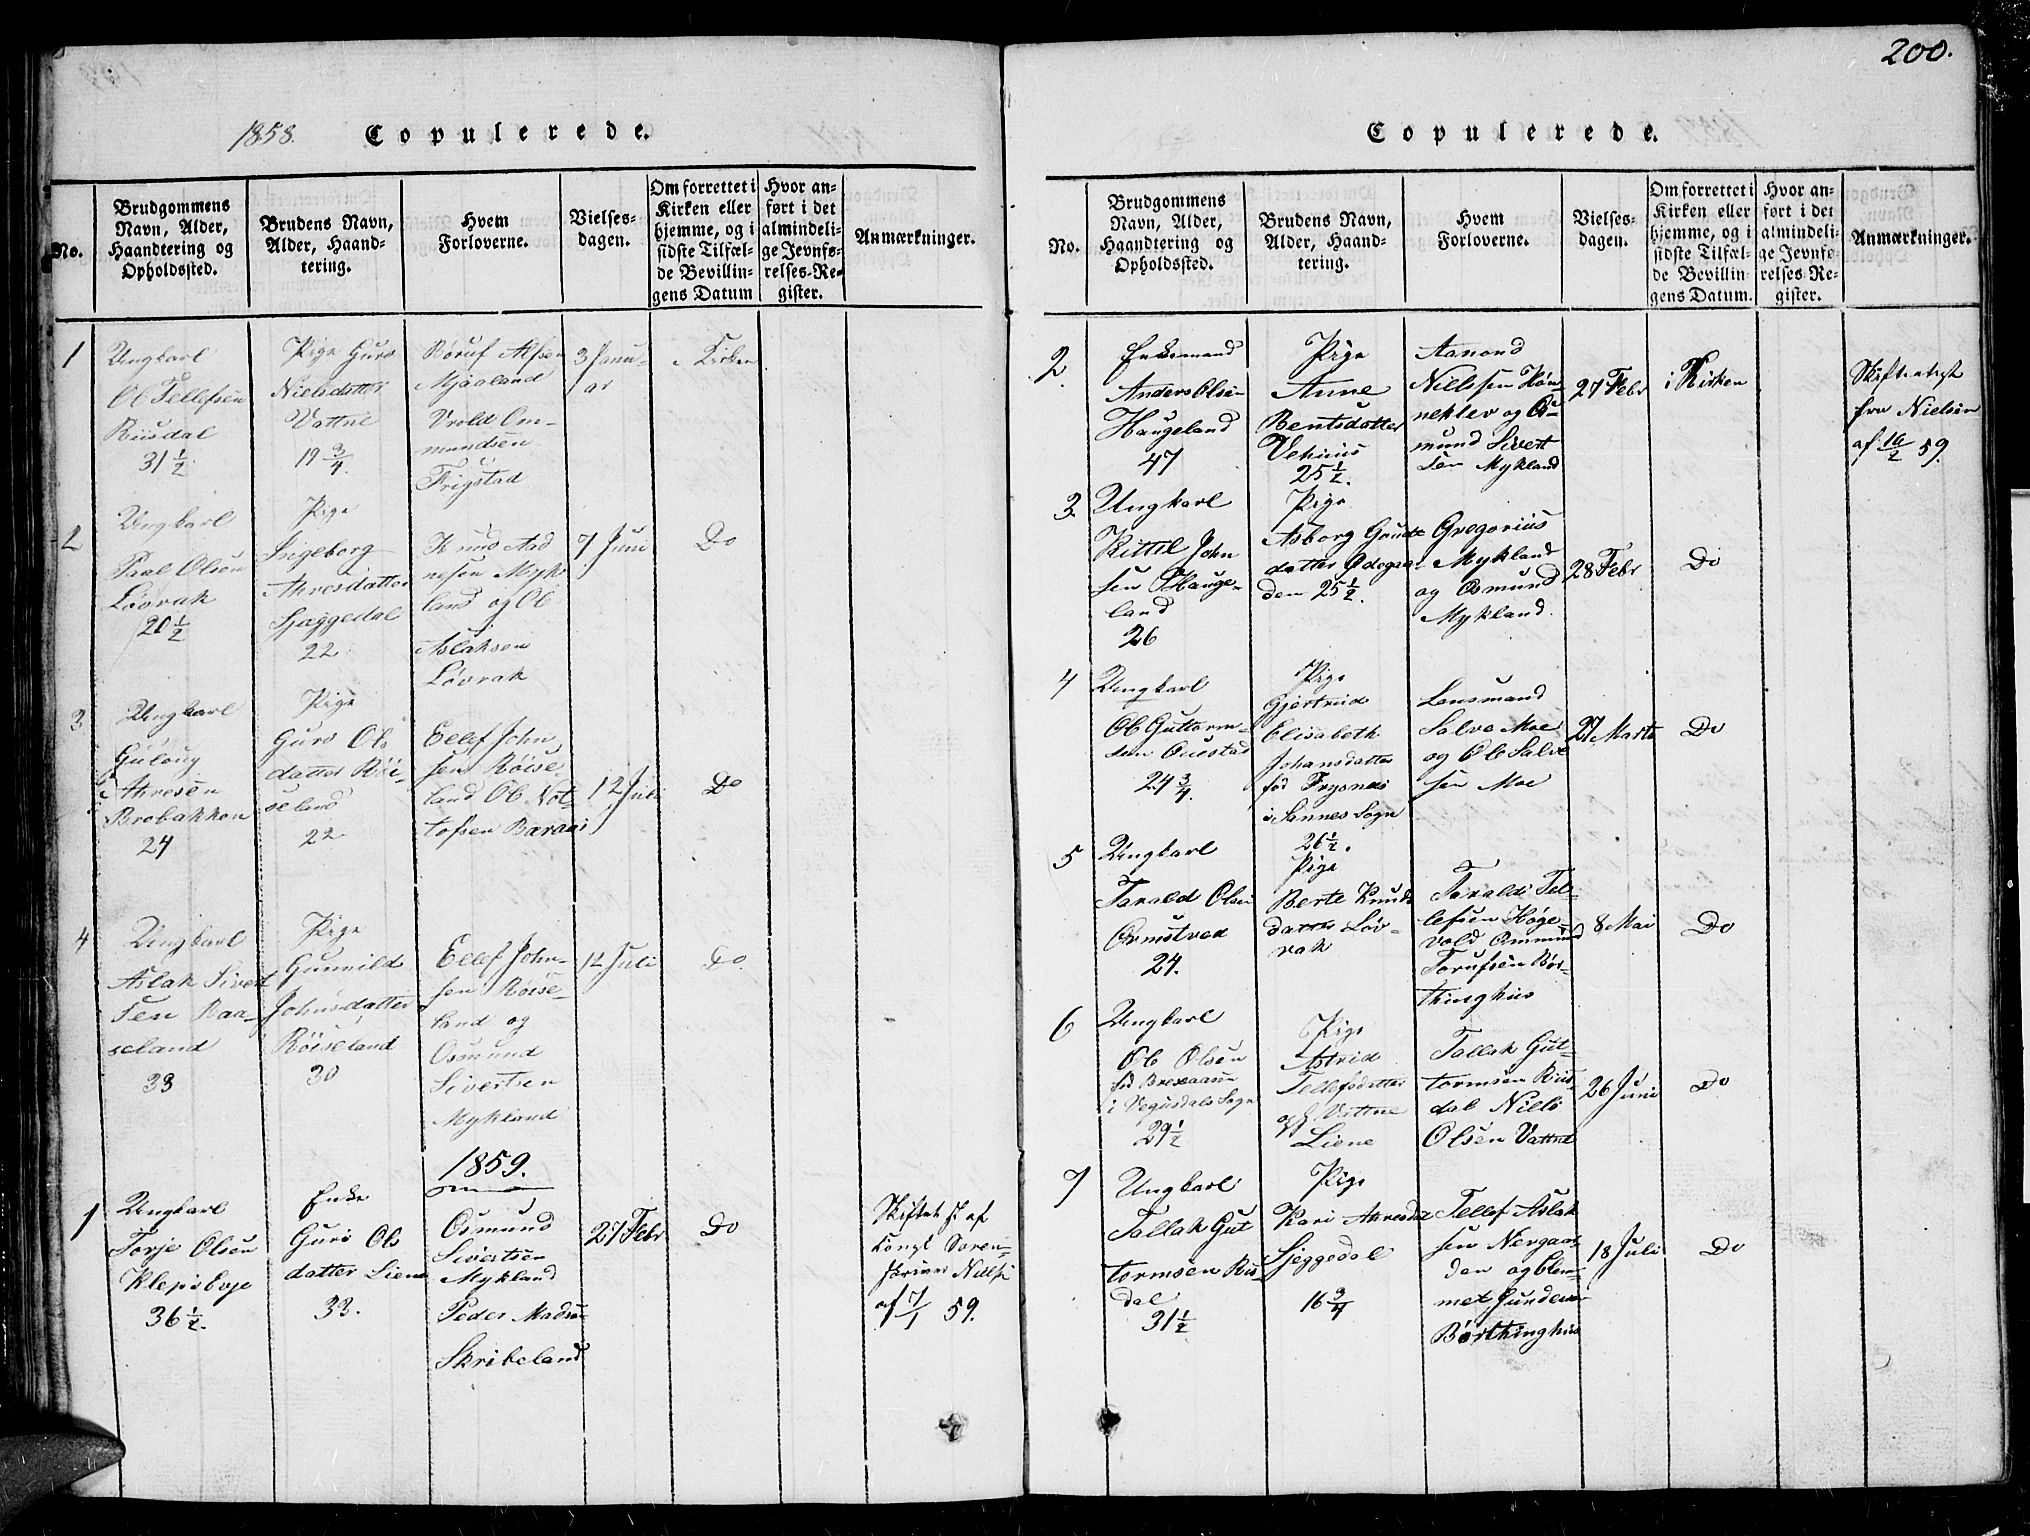 200.
1858. Copulerede.
No.
Brudgommens
Navn, Alder,
Haandtering og
Opholdssted.
Brudens Navn,
Alder, Haand-
tering.
Hvem
Forloverne.
Vielses-
dagen.
Om forrettet i
Kirken eller
hjemme, og i
sidste Tilfæl-
de Bevillin-
gens Datum
Hvor an-
ført i det
almindeli-
ge Jevnfø-
relses-Re-
gister.
Anmærkninger.
1
Ungkarl
Ol Tellefsen
Riisdal
31 1/2
Pige Guro
Nielsdatter
Vattne
19 3/4.
Børuf Alfsen
Mjaaland
Vrold Om-
mundsen
Frigstad
3 Janu-
ar
i Kirken
2
Ungkarl
Paal Olsen
Løvrak
20 1/2
Pige
Ingeborg
Ahresdatter
Sjæggedal
22
Knud Aad
nesen Myk
land og Ol
Aslaksen
Løvrak
7 Juni
Do
3
Ungkarl
Gulouy
Ahresen
Brobakken
24
Pige
Guro Ols
datter Røi-
seland
22
Ellef John
sen Røise-
land Ol Not-
tofsen Baraas
12 Juli
Do
4
Ungkarl
Aslak Sivert
sen Raa-
seland
33
Pige
Gunnild
Johnsdatter
Røiseland
30
Ellef John-
sen Røise-
land og
Osmund
Sivertsen
Mykland
12 Juli
Do
1859.
1
Ungkarl
Torje Olsen
Klep i Evje
36 1/2.
Enke
Guro Ols
datter Liene
33.
Osmund
Sivertsen
Mykland
Peder Madsen
Skribeland
27 Febr
Do
Skiftet
af 7/1 59.
Copulerede.
No.
Brudgommens
Navn, Alder,
Haandtering og
Opholdssted.
Brudens Navn,
Alder, Haand-
tering.
Hvem
Forloverne.
Vielses-
dagen.
Om forrettet i
Kirken eller
hjemme, og i
sidste Tilfæl-
de Bevillin
gens Datum.
Hvor an-
ført i det
almindeli-
ge Jevnfø-
relses-Re-
gister.
Anmærkninger.
2
Enkemand
Anders Olsen
Haugeland
47
Pige
Anne
Bentsdatter
Vehuus
25 1/2.
Aanond
Nielssen Røn
neklev og Os-
mund Sivert
sen Mykland
27 Febr
i Kirken
Skifteattest
fra Nielsen
af 16/2 59.
3.
Ungkarl
Kittil John
sen Hauge-
land
26
Pige
Asborg Gaute
datter Ødegaar-
den 25 1/2.
Gregorius
Mykland
og Osmund
Mykland.
28 Febr
Do
4
Ungkarl
Ol Guttorm-
sen Ouestad
24 3/4.
Pige
Gjertrud
Elisabeth
Johansdatter
fød Frysnes
i Sannes Sogn
26 1/2.
Lensmand
Salve Moe
og Ole Salve
sen Moe
27 Marts
Do
5
Ungkarl
Tarald Olsen
Ormstved
24.
Pige
Berte Knuds
datter Løv-
rak
Tarald Tel-
lefsen Høge-
vold Ommund
Torufsen Bør-
thinghus
8 Mai
Do
6
Ungkarl
Ol Olsen
i Vegusdals Sogn
29 1/2
Pige
Astrid
Tellefsdatter
Vattne
Liene
Tallak Gut-
tormsen Riis-
dal Niels
Olsen Vattne
26 Juni
Do
7
Ungkarl
Tallak Gut
tormsen Riis-
dal
31 1/2
Pige
Kari Ahresdat
Sjeggedal
16 3/4
Tellef Aslak
sen Nergaar-
den og Clem-
met Gundersen
Børthinghus
18 Juli
Do